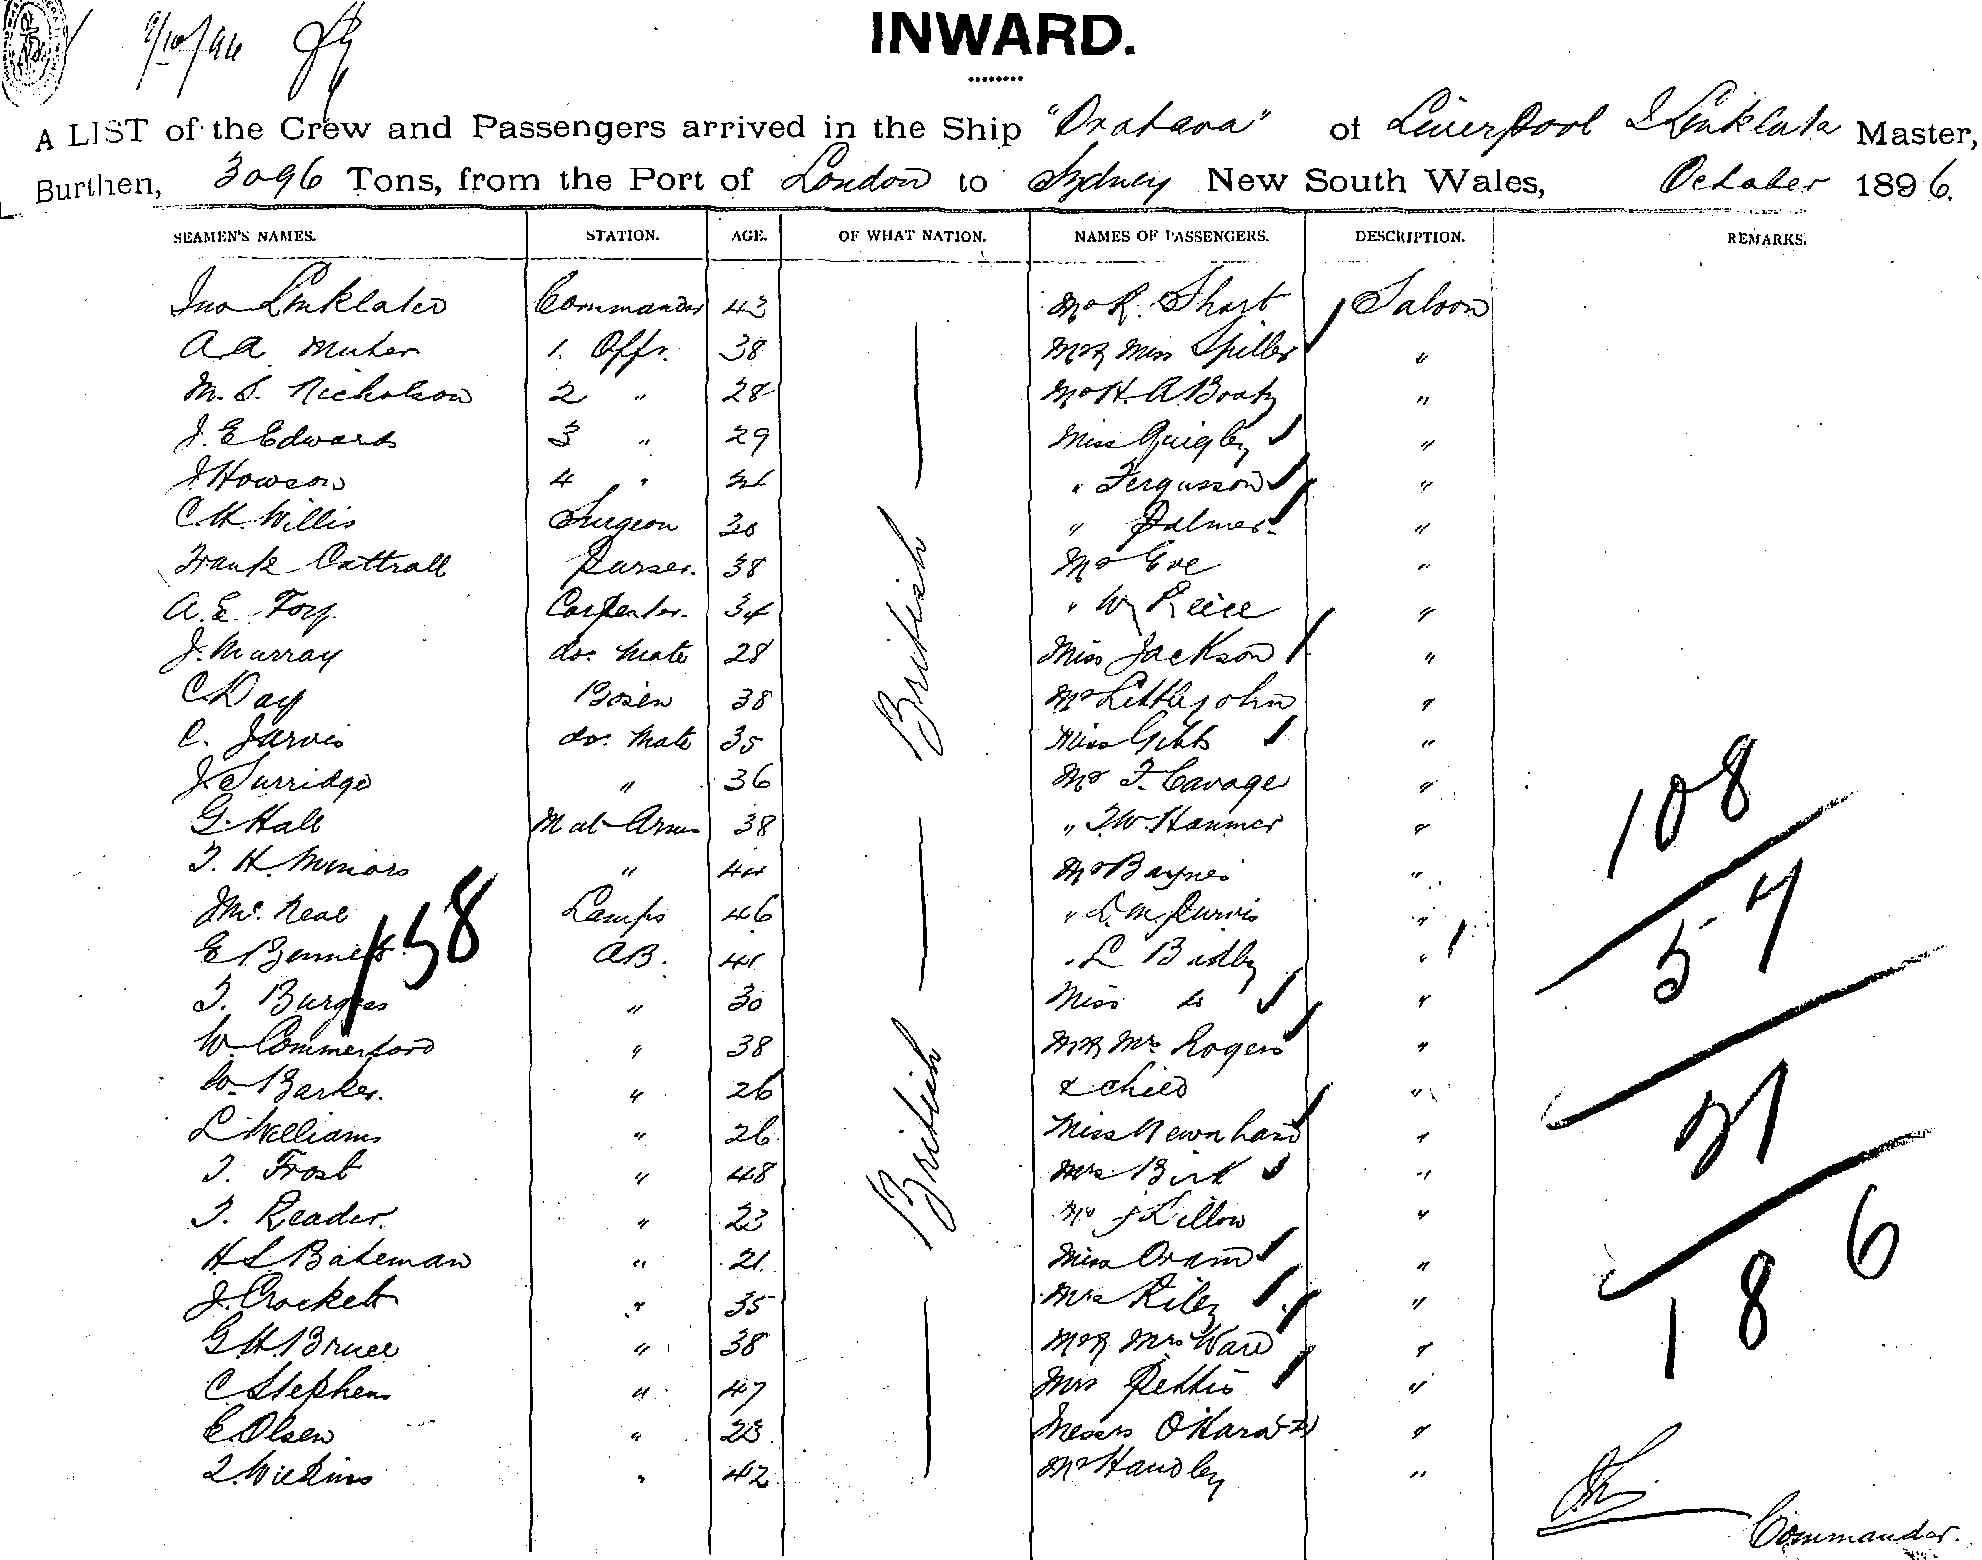 9/10/96
INWARD.
A LIST of the Crew and Passengers arrived in the Ship "Orotava" of Liverpool J Linklater Master,
Burthen, 3096 Tons, from the Port of London to Sydney New South Wales, October 1896.
SEAMEN'S NAMES. STATION. AGE. OF WHAT NATION. NAMES OF PASSENGERS. DESCRIPTION. REMARKS.
Jno Linklater Commander 43 Mr R. Short Saloon
A A Muter 1. Offr. 38 Mr & Miss Spiller "
M. S. Nicholson 2 " 28 Mr H. A. "
J. E Edwards 3 " 29 Miss Quigley "
J Howson 4 " " Fergusson "
C H Willis Surgeon 30 " Palmer "
Frank Cattrall Purser. 38 Mr Eve "
A. E. Carpenter. 34 " W Reice "
J. Murray do. Mate 28 Miss Jackson "
C Day Bosen 38 Mr Littlejohn "
C. Jarvis do. Mate 35 Miss Gibbs "
J. Surridge " 36 Mr F. Cavage "
G. Hall M at Arms 38 " T. W. Hanmer "
T. H. Minors " 44 Mr Baynes "
Neal Lamps 46 " L. M. Purvis "
E Bennett AB. 41 " L Badly "
T. Burgess " 30 Miss do "
W. Commerford " 38 Mr & Mrs Rogers "
W. Barker. " 26 & child "
L Williams " 26 Miss Newnham "
T. Frost " 48 Mrs Birt "
T. Reader. " 23 Mr J Dillon "
H L Bateman " 21 Miss Oram "
J. Crockett " 35 Mrs Riley "
G H Bruce " 38 Mr & Mrs Ward "
C Stephens " 47 Mrs Pettis "
E Olsen " 23 Messrs O'Hara (2) "
Wilkins " 42 Mr Handley "
British
British
158
108
57
21
186
Commander.